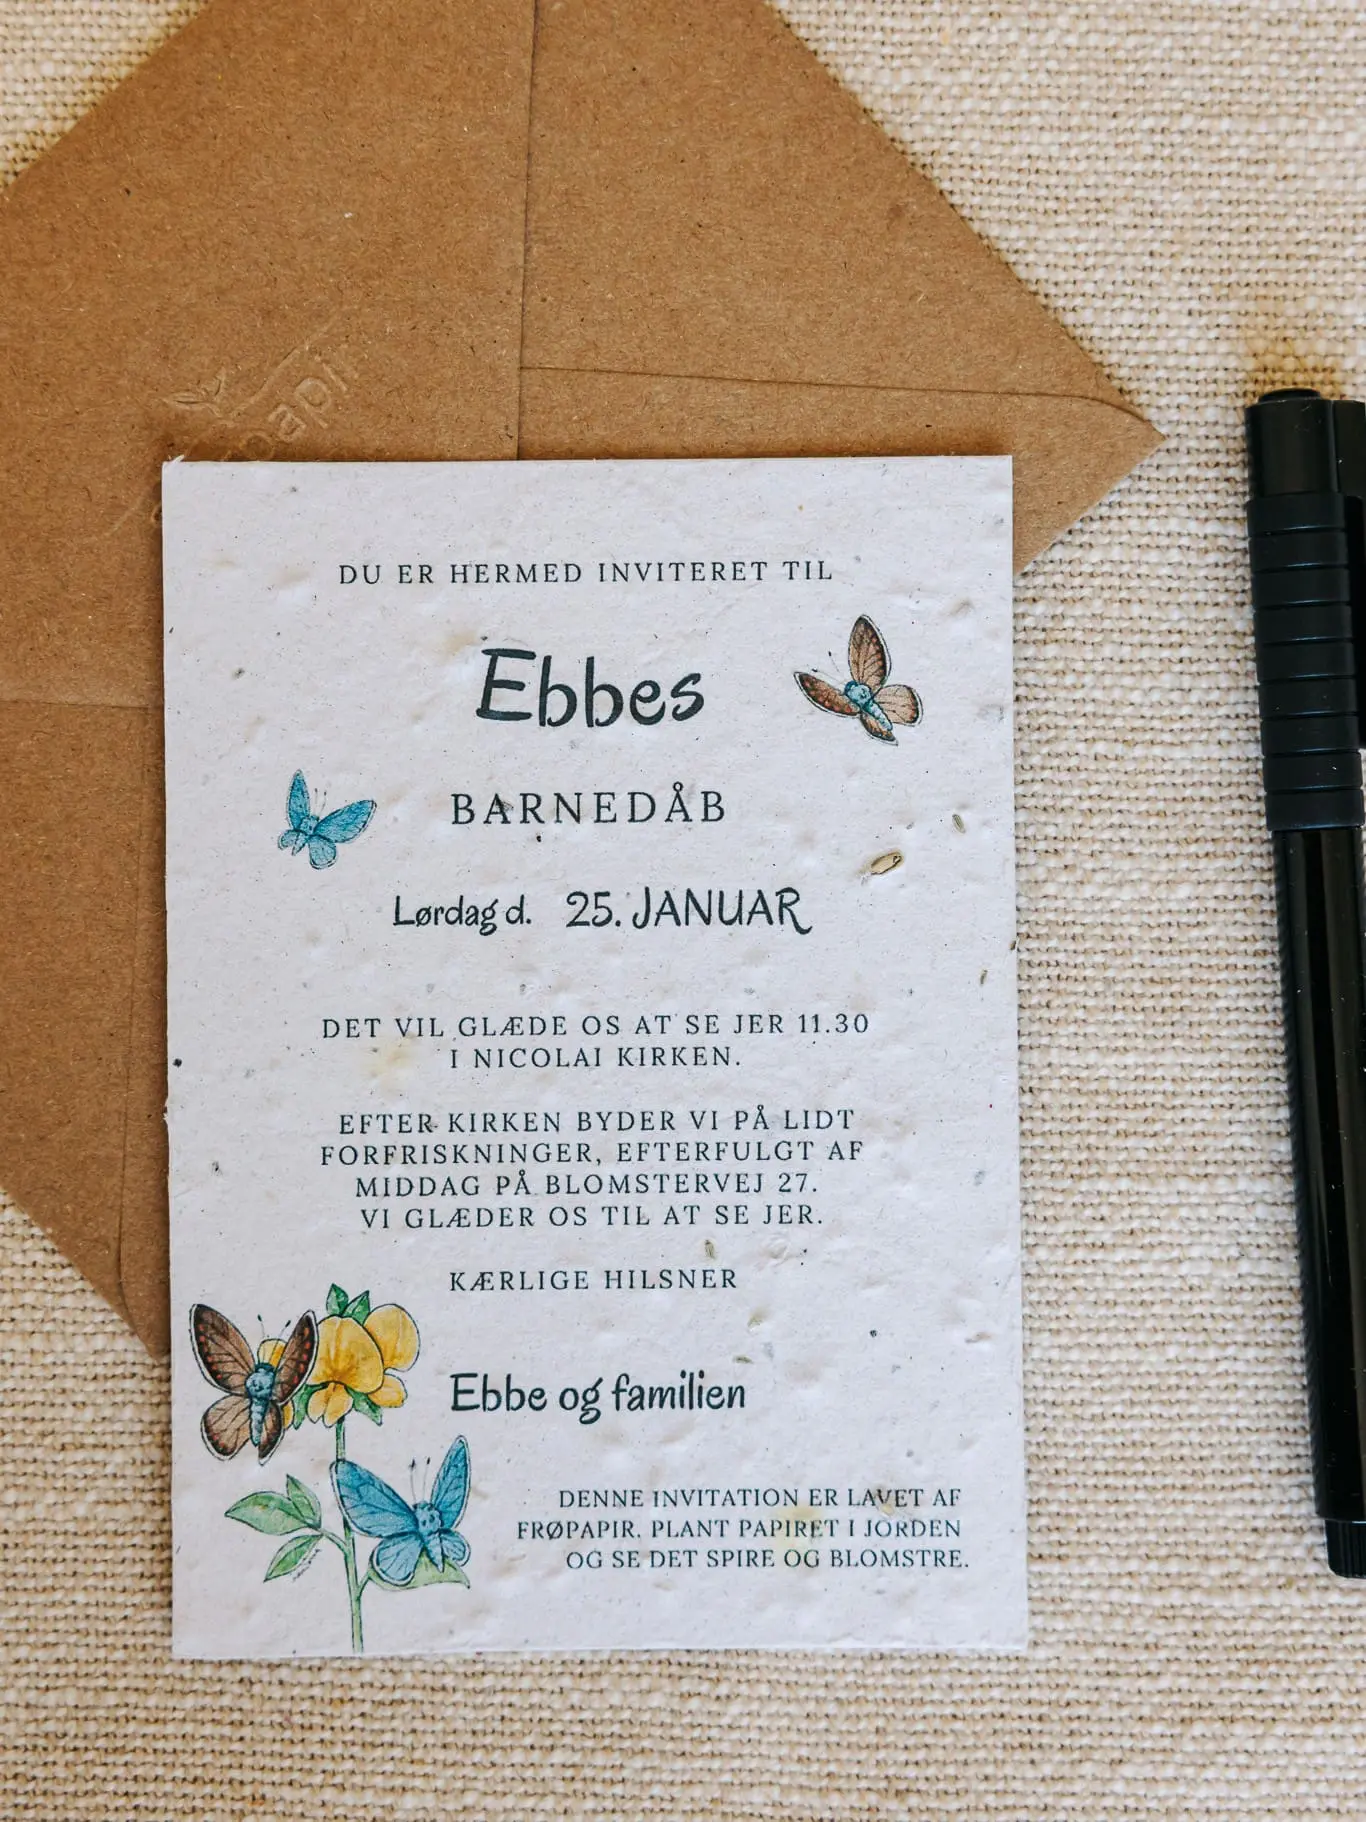 DU ER HERMED INVITERET TIL
Ebbes
BARNEDÅB
Lørdag d. 25. JANUAR
DET VIL GLÆDE OS AT SE JER 11.30
I NICOLAI KIRKEN.
EFTER KIRKEN BYDER VI PÅ LIDT
FORFRISKNINGER, EFTERFULGT AF
MIDDAG PÅ BLOMSTERVEJ 27.
VI GLÆDER OS TIL AT SE JER.
KÆRLIGE HILSNER
Ebbe og familien
DENNE INVITATION ER LAVET AF
FRØPAPIR. PLANT PAPIRET I JORDEN
OG SE DET SPIRE OG BLOMSTRE.